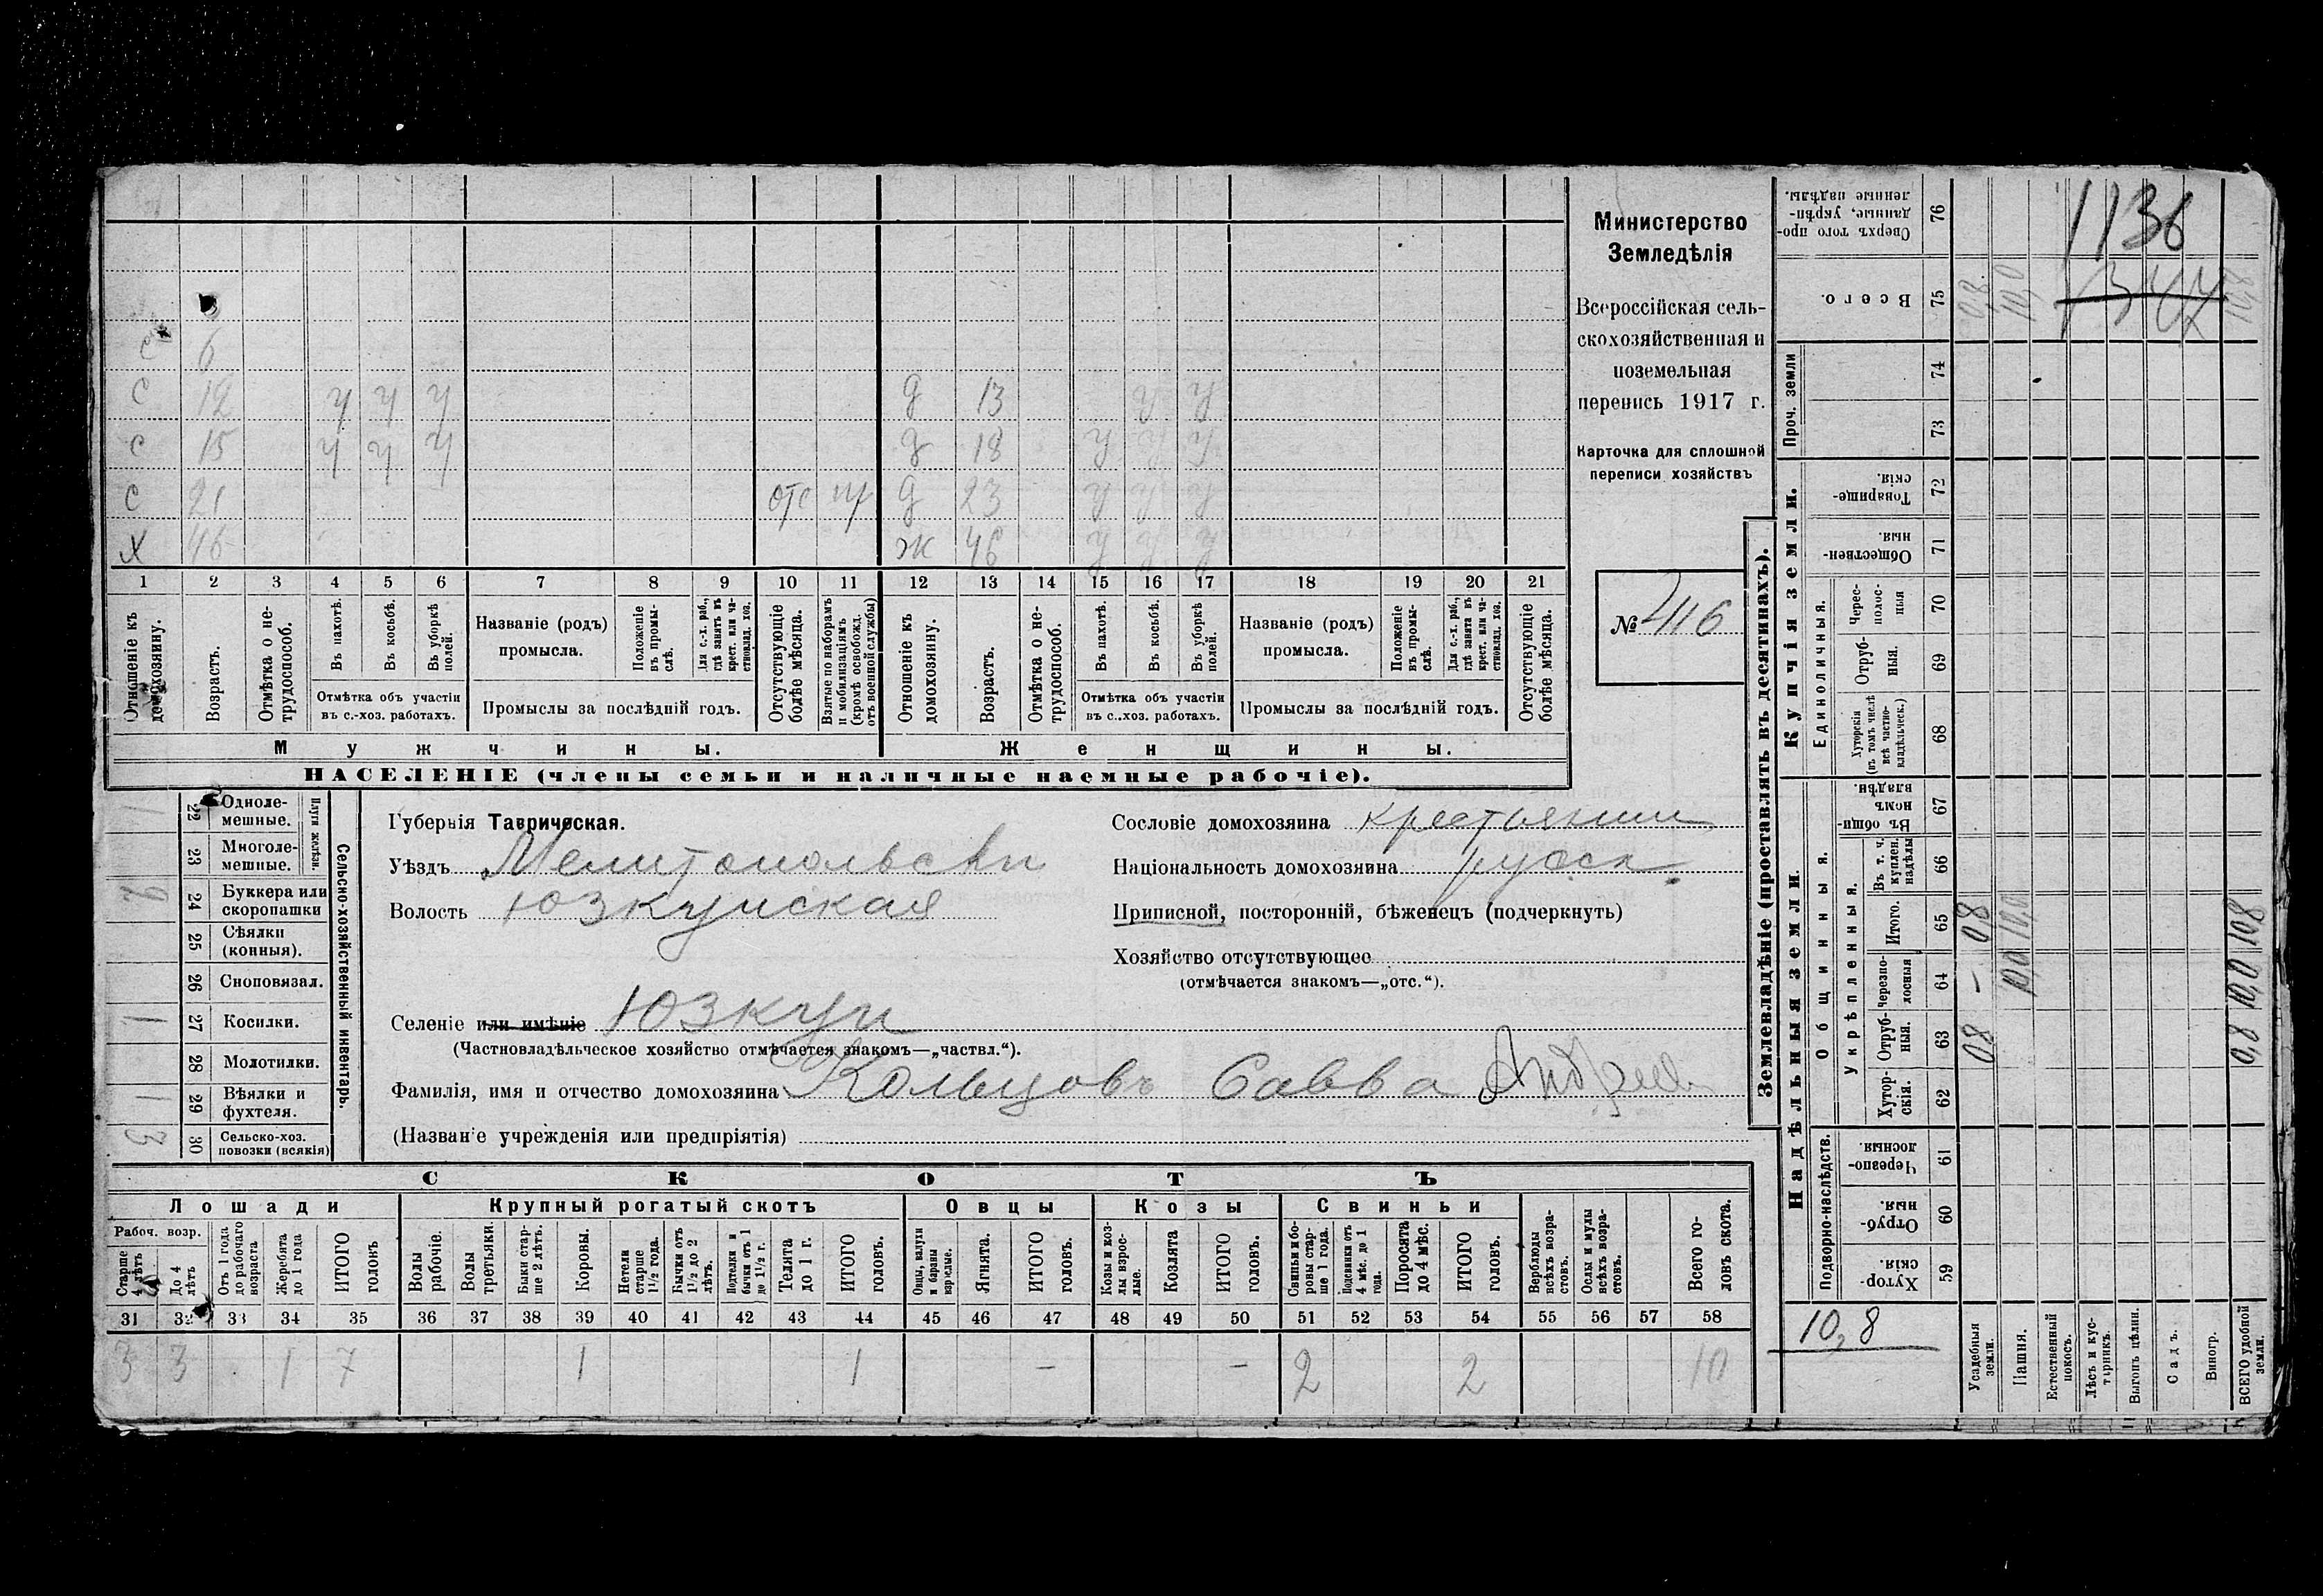 С 6
С 12 у у у д 13 у у
С 15 у у у д 18 у у у
С 21 отс д 23 у у у
Х 46 ж 46 у у у
1 2 3 4 5 6 7 8 9 10 11 12 13 14 15 16 17 18 19 20 21
Отношеніе къ домохозяину.
Возрастъ.
Отмѣтка о нетрудоспособ.
Въ пахотѣ.
Въ косьбѣ.
Въ уборкѣ полей.
Отмѣтка объ участіи въ с.-хоз. работахъ.
Названіе (родъ) промысла.
Положеніе въ промыслѣ.
Для с.-х. раб., гдѣ занятъ въ крест. или частновлад. хоз.
Промыслы за послѣдній годъ.
Отсутствующіе болѣе мѣсяца.
Взятые по наборамъ и мобилизаціямъ (кромѣ освобожд. отъ военной службы)
Отношеніе къ домохозяину.
Возрастъ.
Отмѣтка о нетрудоспособ.
Въ пахотѣ.
Въ косьбѣ.
Въ уборкѣ полей.
Отмѣтка объ участіи въ с..хоз. работахъ.
Названіе (родъ) промысла.
Положеніе въ промыслѣ.
Для с.-х. раб., гдѣ занята въ крест. или частновлад. хоз.
Промыслы за послѣдній годъ.
Отсутствующіе болѣе мѣсяца.
Мужчины.
Женщины.
НАСЕЛЕНІЕ (члены семьи и наличные наемные рабочіе).
Министерство
Земледѣлія
Всероссійская сель-
скохозяйственная и
поземельная
перепись 1917 г.
Карточка для сплошной
переписи хозяйствъ
№ 416
Сельско-хозяйственный инвентарь.
Плуги желѣзн.
22 Одноле-
мешные. 1
23 Многоле-
мешные.
24 Буккера или
скоропашки 2
25 Сѣялки
(конныя).
26 Сноповязал.
27 Косилки. 1
28 Молотилки.
29 Вѣялки и
фухтеля. 1
30 Сельско-хоз.
повозки (всякія) 3
Губернія Таврическая.
Уѣздъ Мелитопольски
Волость Юзкуйская
Селеніе или имѣніе Юзкуи
(Частновладѣльческое хозяйство отмѣчается знакомъ—„частвл.“).
Фамилія, имя и отчество домохозяина Кольцовъ Савва Андреев
(Названіе учрежденія или предпріятія)
Сословіе домохозяина крестьянин
Національность домохозяина русск.
Приписной, посторонній, бѣженецъ (подчеркнуть)
Хозяйство отсутствующее
(отмѣчается знакомъ—„отс.“).
СКОТЪ
Лошади
Крупный рогатый скотъ
Овцы
Козы
Свиньи
Рабоч. возр.
Старше 4 лѣтъ
До 4 лѣтъ
Отъ 1 года до рабочаго возраста
Жеребята до 1 года
ИТОГО головъ
Волы рабочіе.
Волы третьяки.
Быки старше 2 лѣтъ.
Коровы.
Нетели старше 1½ года.
Бычки отъ 1½ до 2 лѣтъ.
Подтелки и бычки отъ 1 до 1½ г.
Телята до 1 г.
ИТОГО головъ.
Овцы, валухи и бараны взрослые.
Ягнята.
ИТОГО головъ.
Козы и козлы взрослые.
Козлята
ИТОГО головъ.
Свиньи и боровы старше 1 года.
Подсвинки отъ 4 мѣс. до 1 года.
Поросята до 4 мѣс.
ИТОГО головъ.
Верблюды всѣхъ возрастовъ.
Ослы и мулы всѣхъ возрастовъ.
Всего головъ скота.
31 32 33 34 35 36 37 38 39 40 41 42 43 44 45 46 47 48 49 50 51 52 53 54 55 56 57 58
3 3 1 7 1 1 — — 2 2 10
Землевладѣніе (проставлять въ десятинахъ).
Купчія земли.
Надѣльныя земли.
Сверхъ того проданные, укрѣпленные надѣлы. 76
Всего. 75
Проч. земли
74
73
Товарищескія. 72
Общественныя. 71
Единоличныя.
Чересполосныя 70
Отрубныя. 69
Хуторскія (въ томъ числѣ всѣ частновладѣльческ.) 68
Общинныя.
Въ общинномъ владѣн. 67
Укрѣпленныя.
Въ т. ч. куплен. надѣлы 66
Итого. 65
Черезполосныя 64
Отрубныя. 63
Хуторскія. 62
Подворно-наслѣдств.
Черезполосныя 61
Отрубныя. 60
Хуторскія. 59
1136
0,8 10,0 10,8
08 10,0 10,8
— 10,0 10,0
08 0,8
10,8
Усадебныя земли.
Пашня.
Естественный покосъ.
Лѣсъ и кустарникъ.
Выгонъ цѣлин.
Садъ.
Виногр.
ВСЕГО удобной земли.